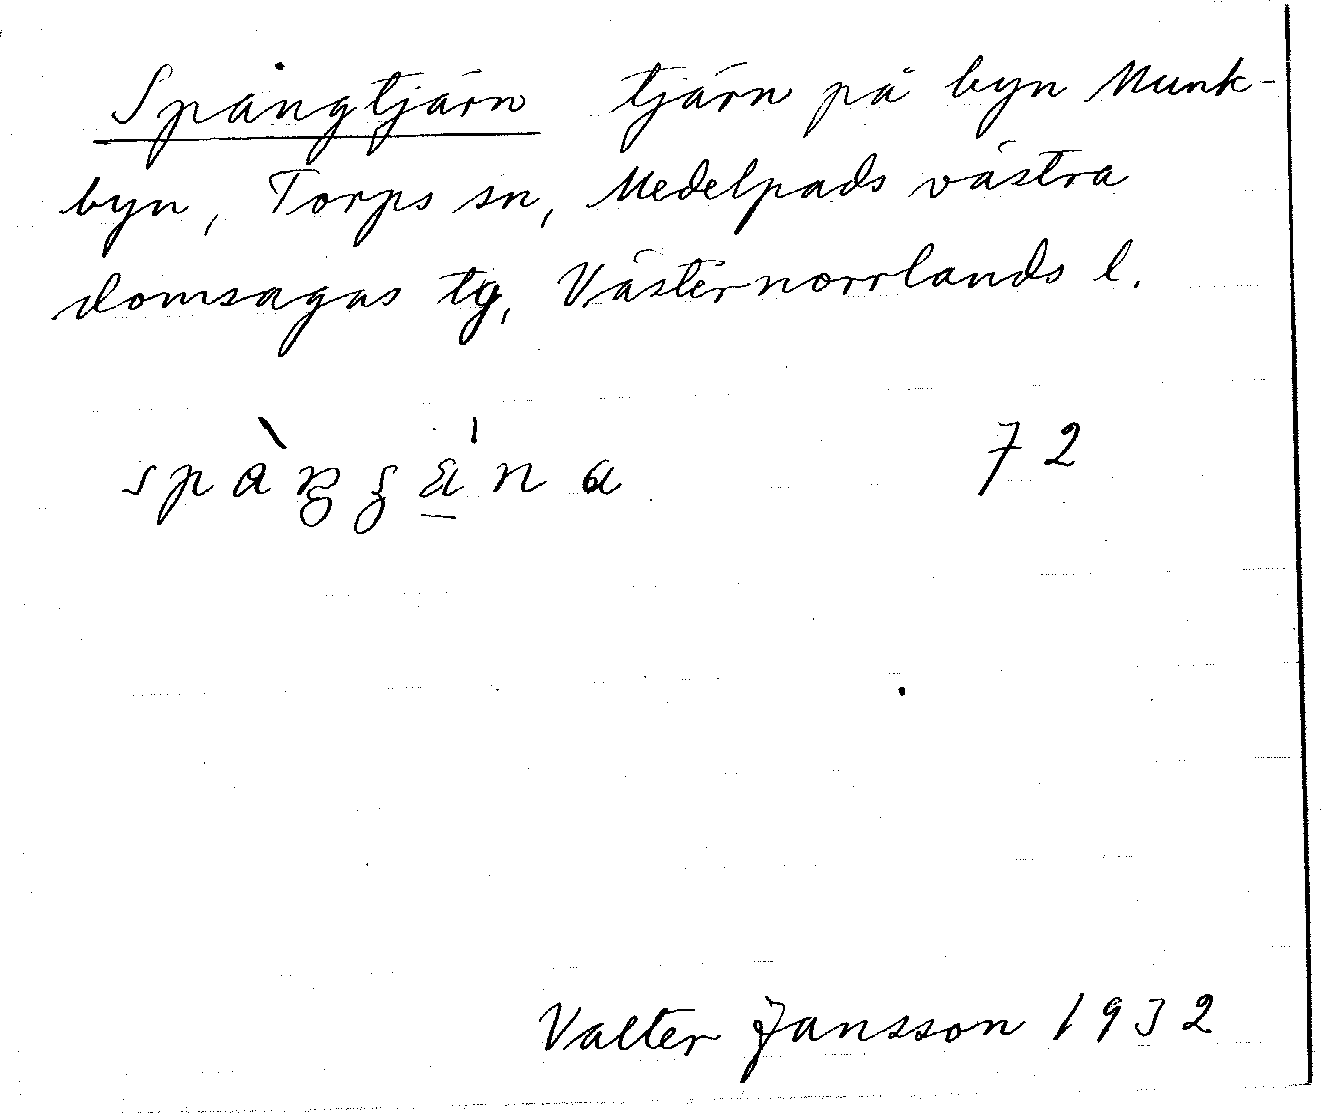 Spångtjärn tjärn på byn Munk-
byn, Torps sn, Medelpads västra
domsagas tg, Västernorrlands l.
72
Valter Jansson 1932